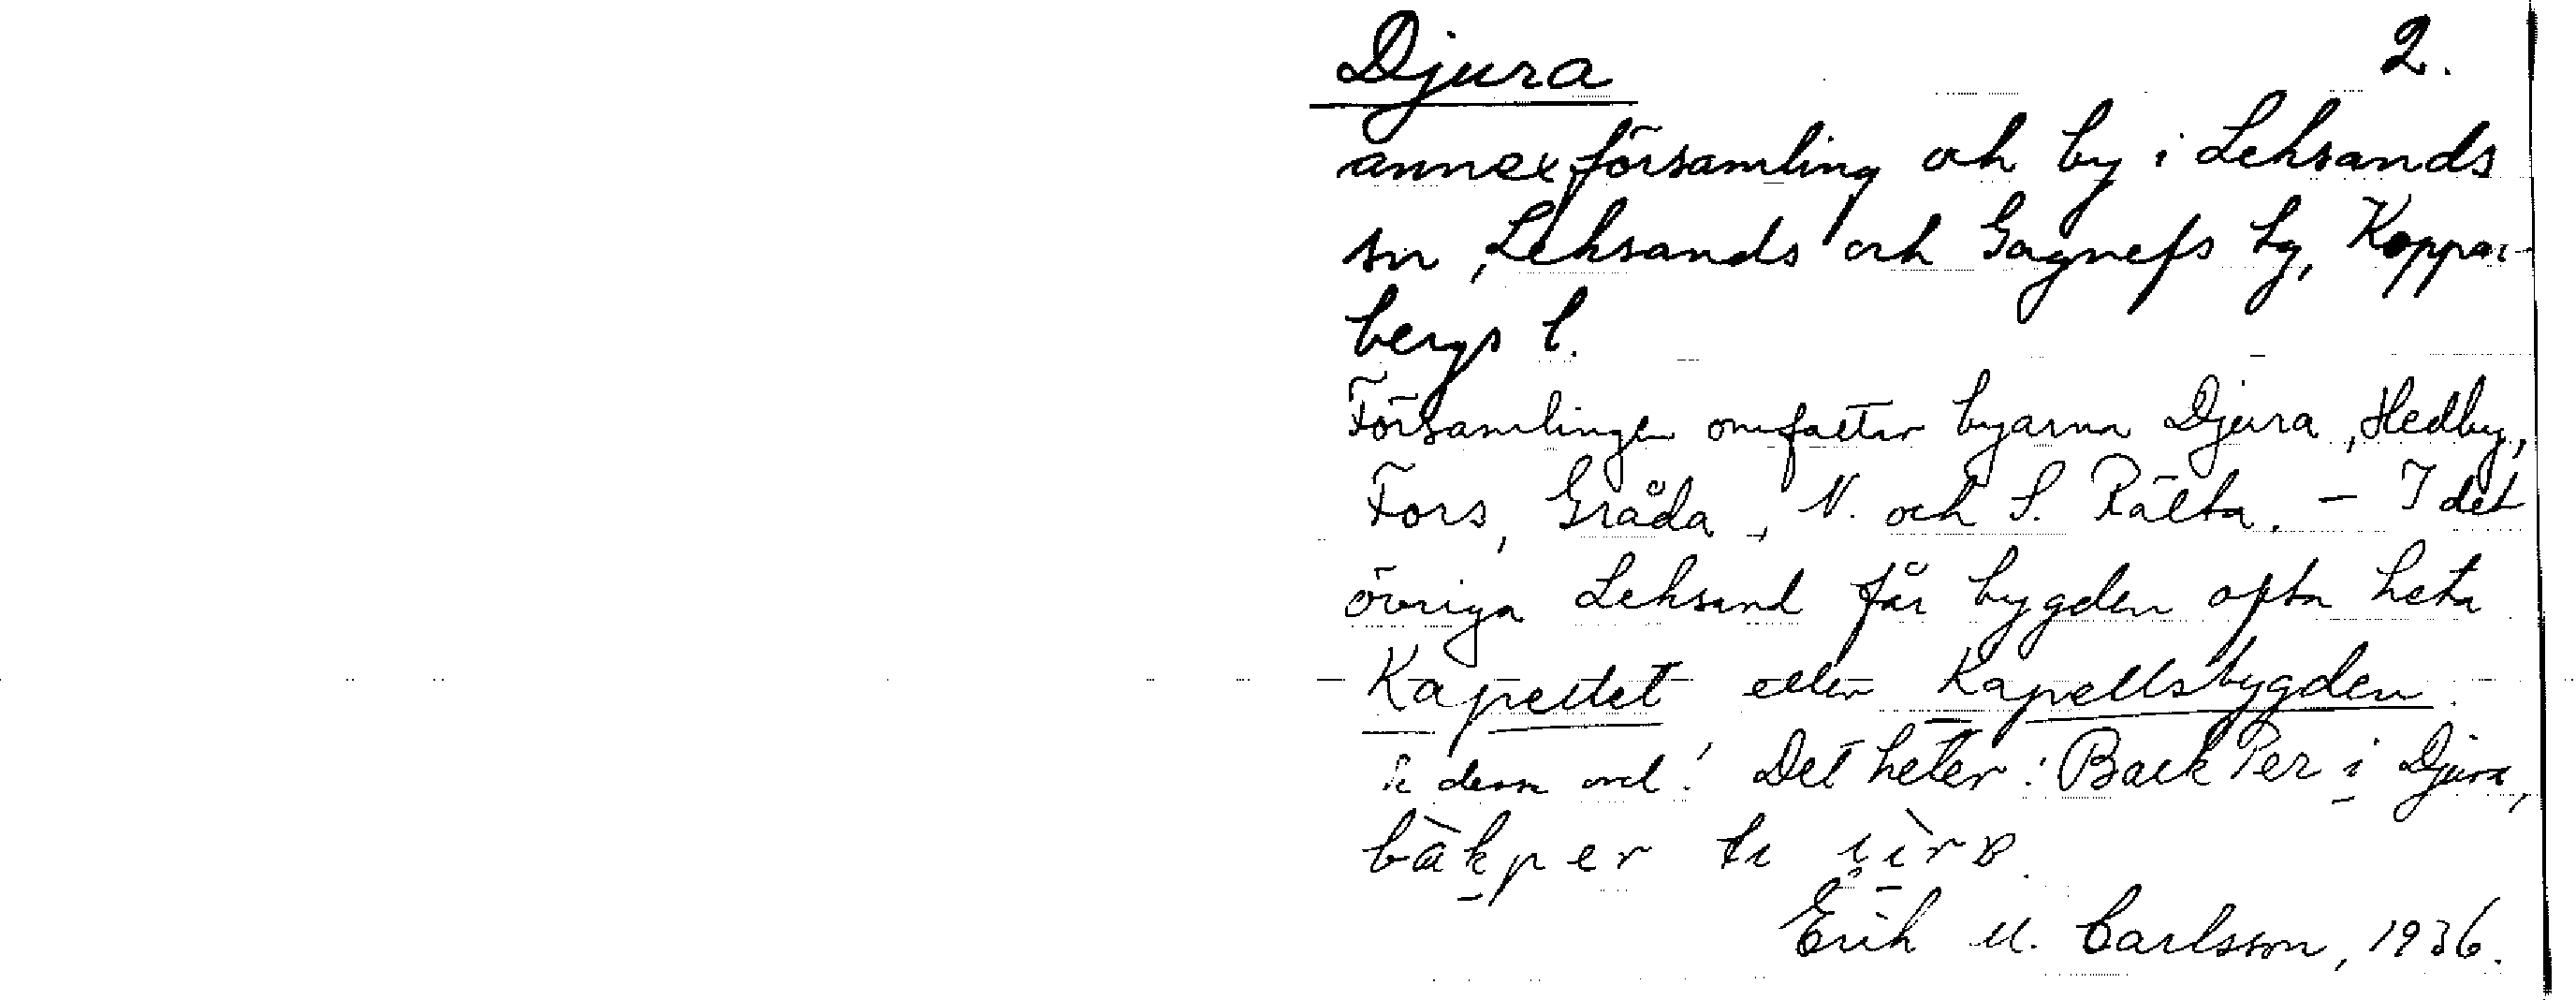 Djura 2.
annexförsamling och by i Leksands
sn, Leksands och Gagnefs tg, Koppar-
bergs l.
Församlingen omfattar byarna Djura, Hedby,
Fors, Gråda, N. och S. Rälta. – I det
övriga Leksand får bygden ofta heta
Kapellet eller Kapellsbygden.
Se dessa ord! Det heter: Back Per i Djura,
bàkper ti
Erik M. Carlsson, 1936.